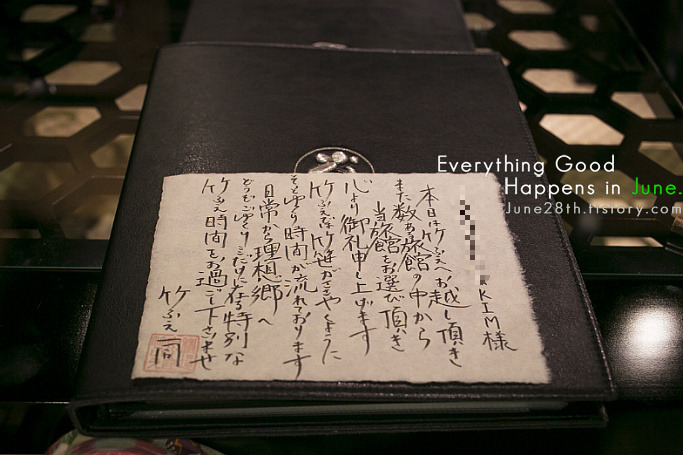 Everything Good
Happens in June.
June28th.tistory.com
KIM様
本日は竹ふえへお越し頂き
また数ある旅館の中から
当旅館をお選び頂き
心より御礼申し上げます
竹ふえは竹笹がささやくように
そっとゆっくり時間が流れております
日常から理想郷へ
どうぞごゆっくりここだけに在る特別な
竹ふえ時間をお過ごし下さいませ
竹ふえ 一同